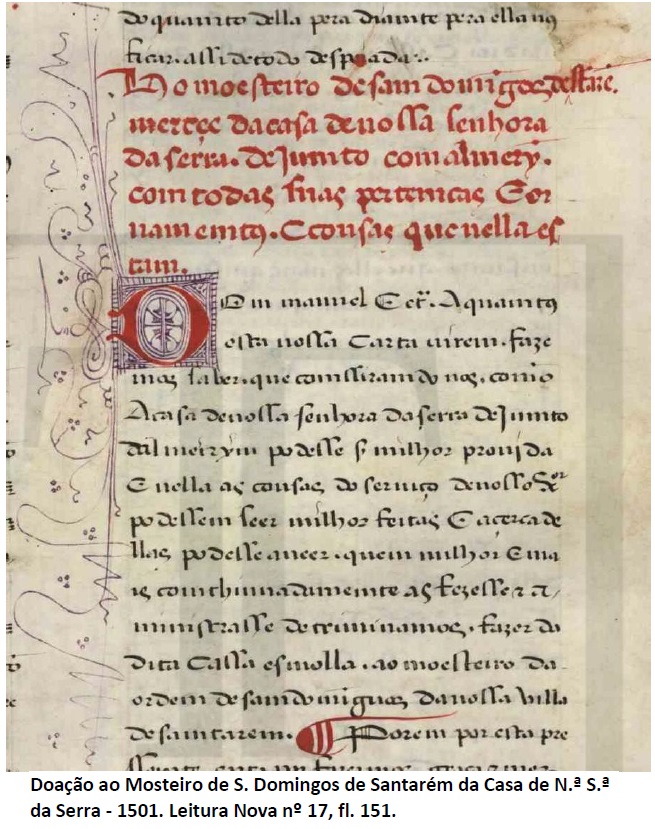 do quanto della pera diante pera ella nos
ficar. assi de todo despejada..
Ao moesteiro de sam domigos de stare.
merçee da casa de nossa senhora
da serra. de Junto com almery.
com todas suas pertenicas E or
namentos. E cousas que nella es
tam.
Dom manuel Ect. A quantos
esta nossa Carta virem. faze
mos saber. que comssirando nos. como
A casa de nossa senhora da serra de Junto
dalmeirym podesse ser milhor provida
E nella as cousas do serviço de nosso Sor
podessem seer milhor feitas E açerca de
llas podesse aveer. quem milhor E ma
is comthinuadamente as fezesse z a
ministrasse detriminamos. fazer da
dita Cassa esmolla. ao moesteiro da
ordem de sam domigos da nossa villa
de santarem. Porem por esta pre
Doação ao Mosteiro de S. Domingos de Santarém da Casa de N.ª S.ª
da Serra - 1501. Leitura Nova nº 17, fl. 151.